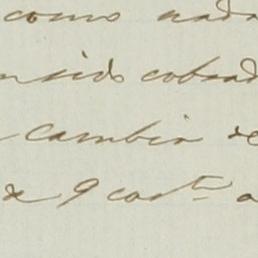 como nada
sido cobrad
cambio de
de 9 cost